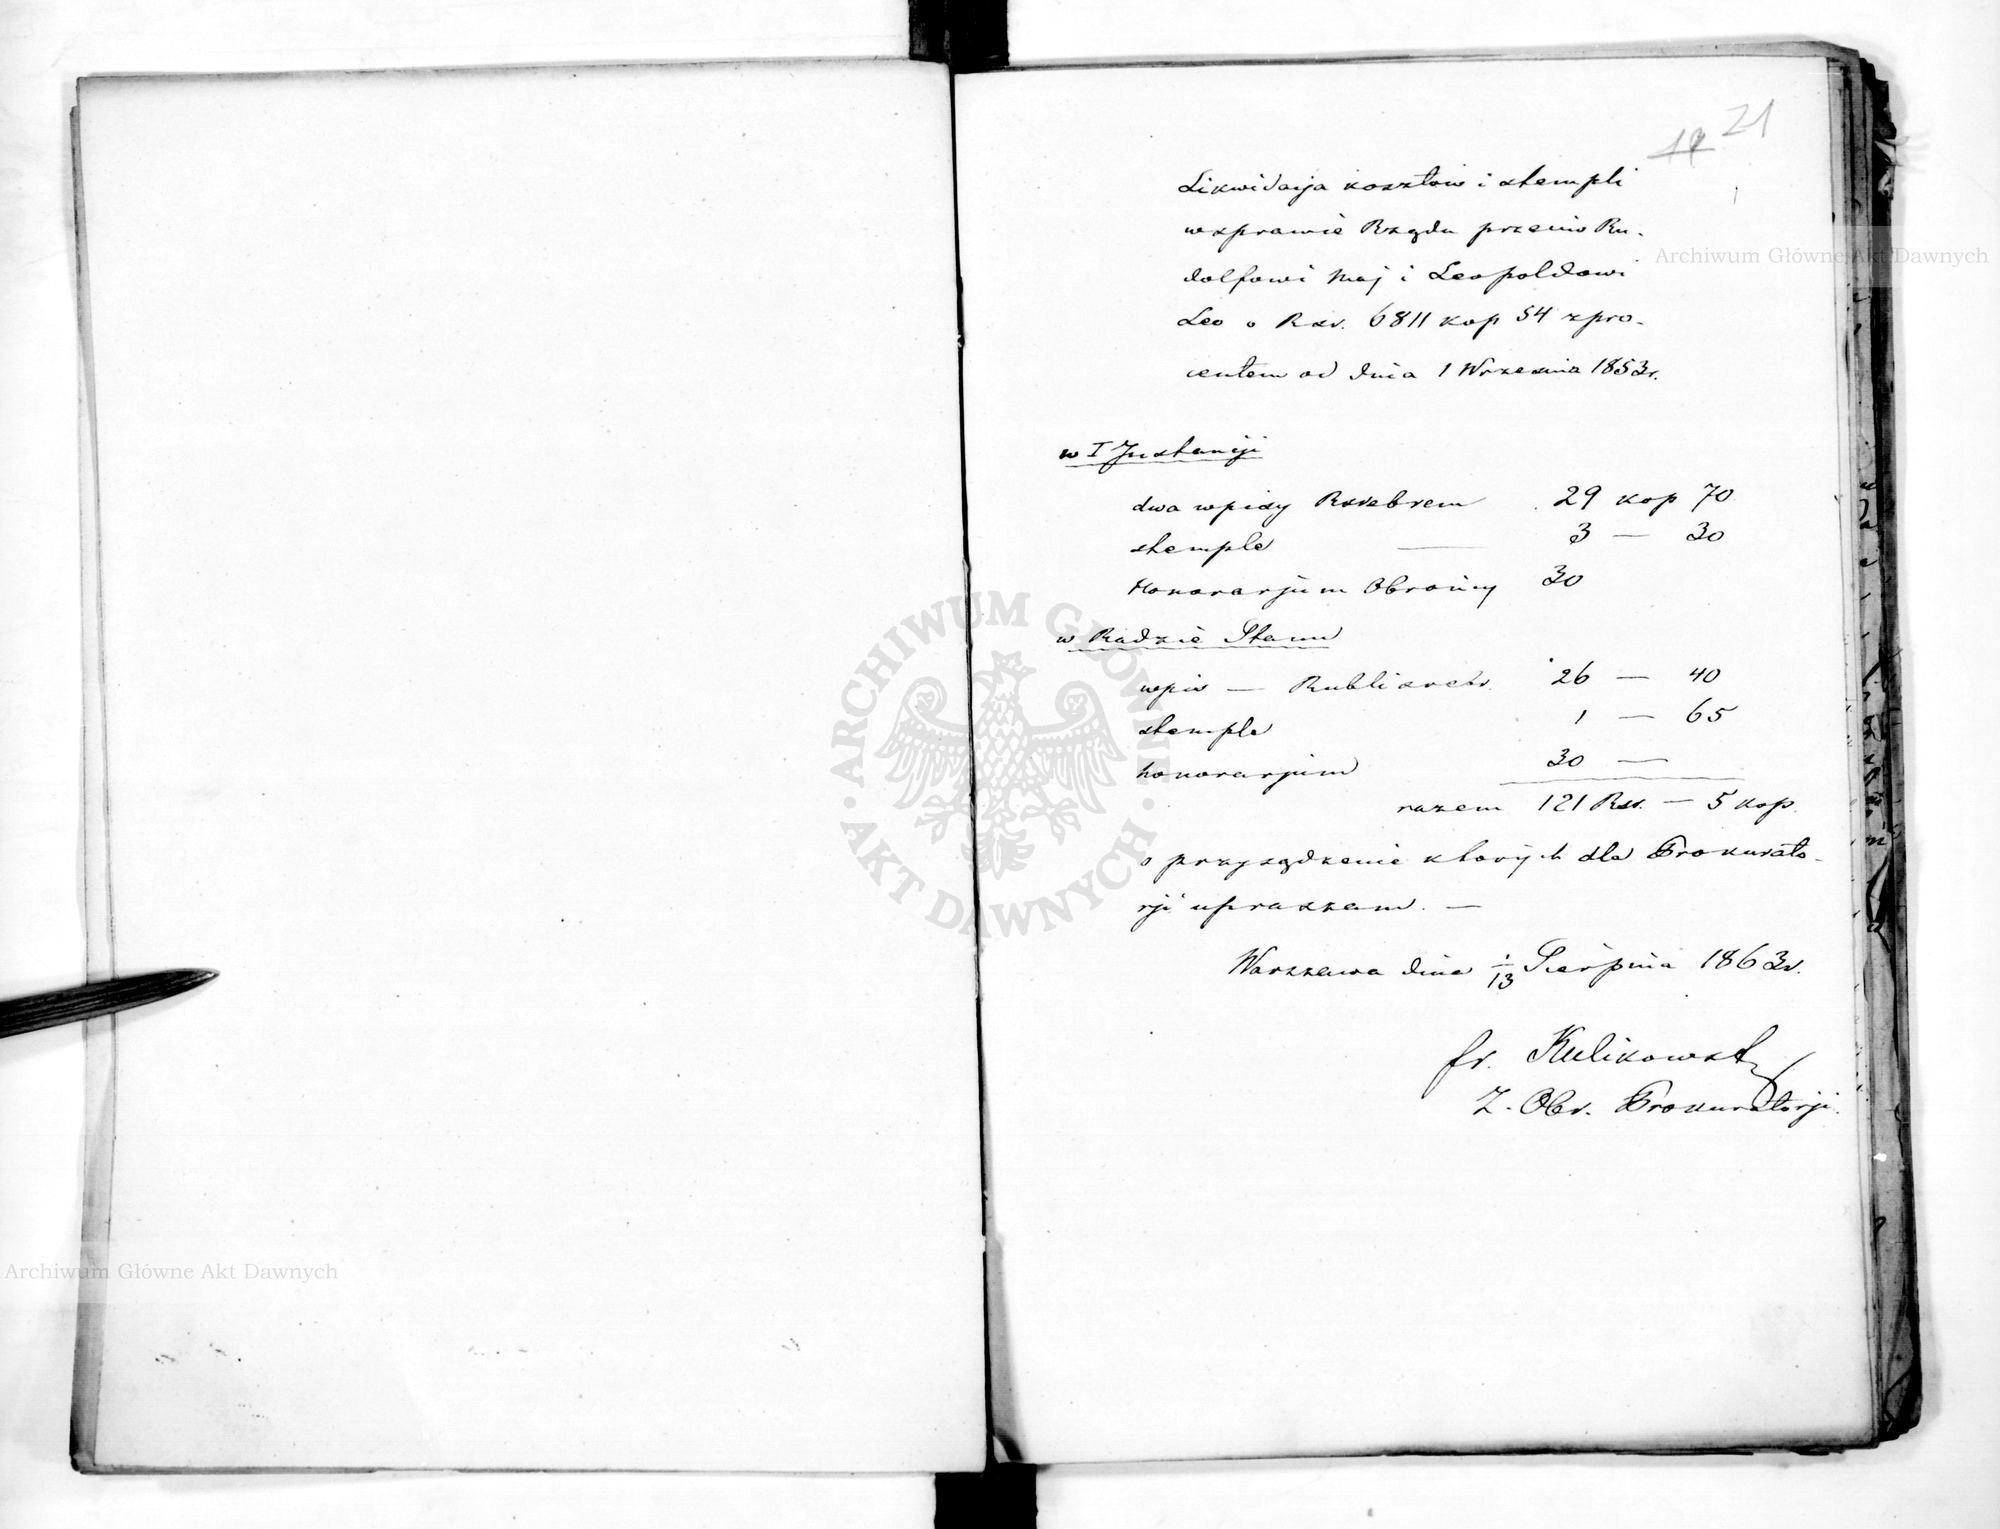 19 21
Likwidacja kosztów i stempli
w sprawie Rządu przeciw Ru-
dolfowi May i Leopoldowi
Leo o Rsr. 6811 kop 54 z pro-
centem od dnia 1 Września 1853 r.
w I Instancji
dwa wpisy Rsrebrem 29 kop 70
stemple — 3 — 30
Honorarjum Obrońcy 30
w Radzie Stanu
wpis — Rubli srebr. 26 — 40
stemple 1 — 65
honorarjum 30 —
razem 121 Rsr. — 5 kop.
o przysądzenie których dla Prokurato-
rji upraszam. —
Warszawa dnia 1/13 Sierpnia 1863 r.
fr. Kulikowski
Z. Obr. Prokuratorji.
Archiwum Główne Akt Dawnych
ARCHIWUM GŁÓWNE AKT DAWNYCH
Archiwum Główne Akt Dawnych